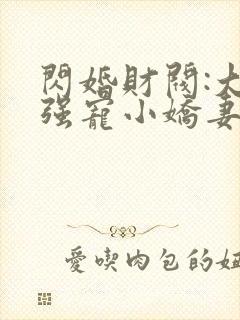 閃婚財閥:大
强寵小嬌妻
愛喫肉包的妞